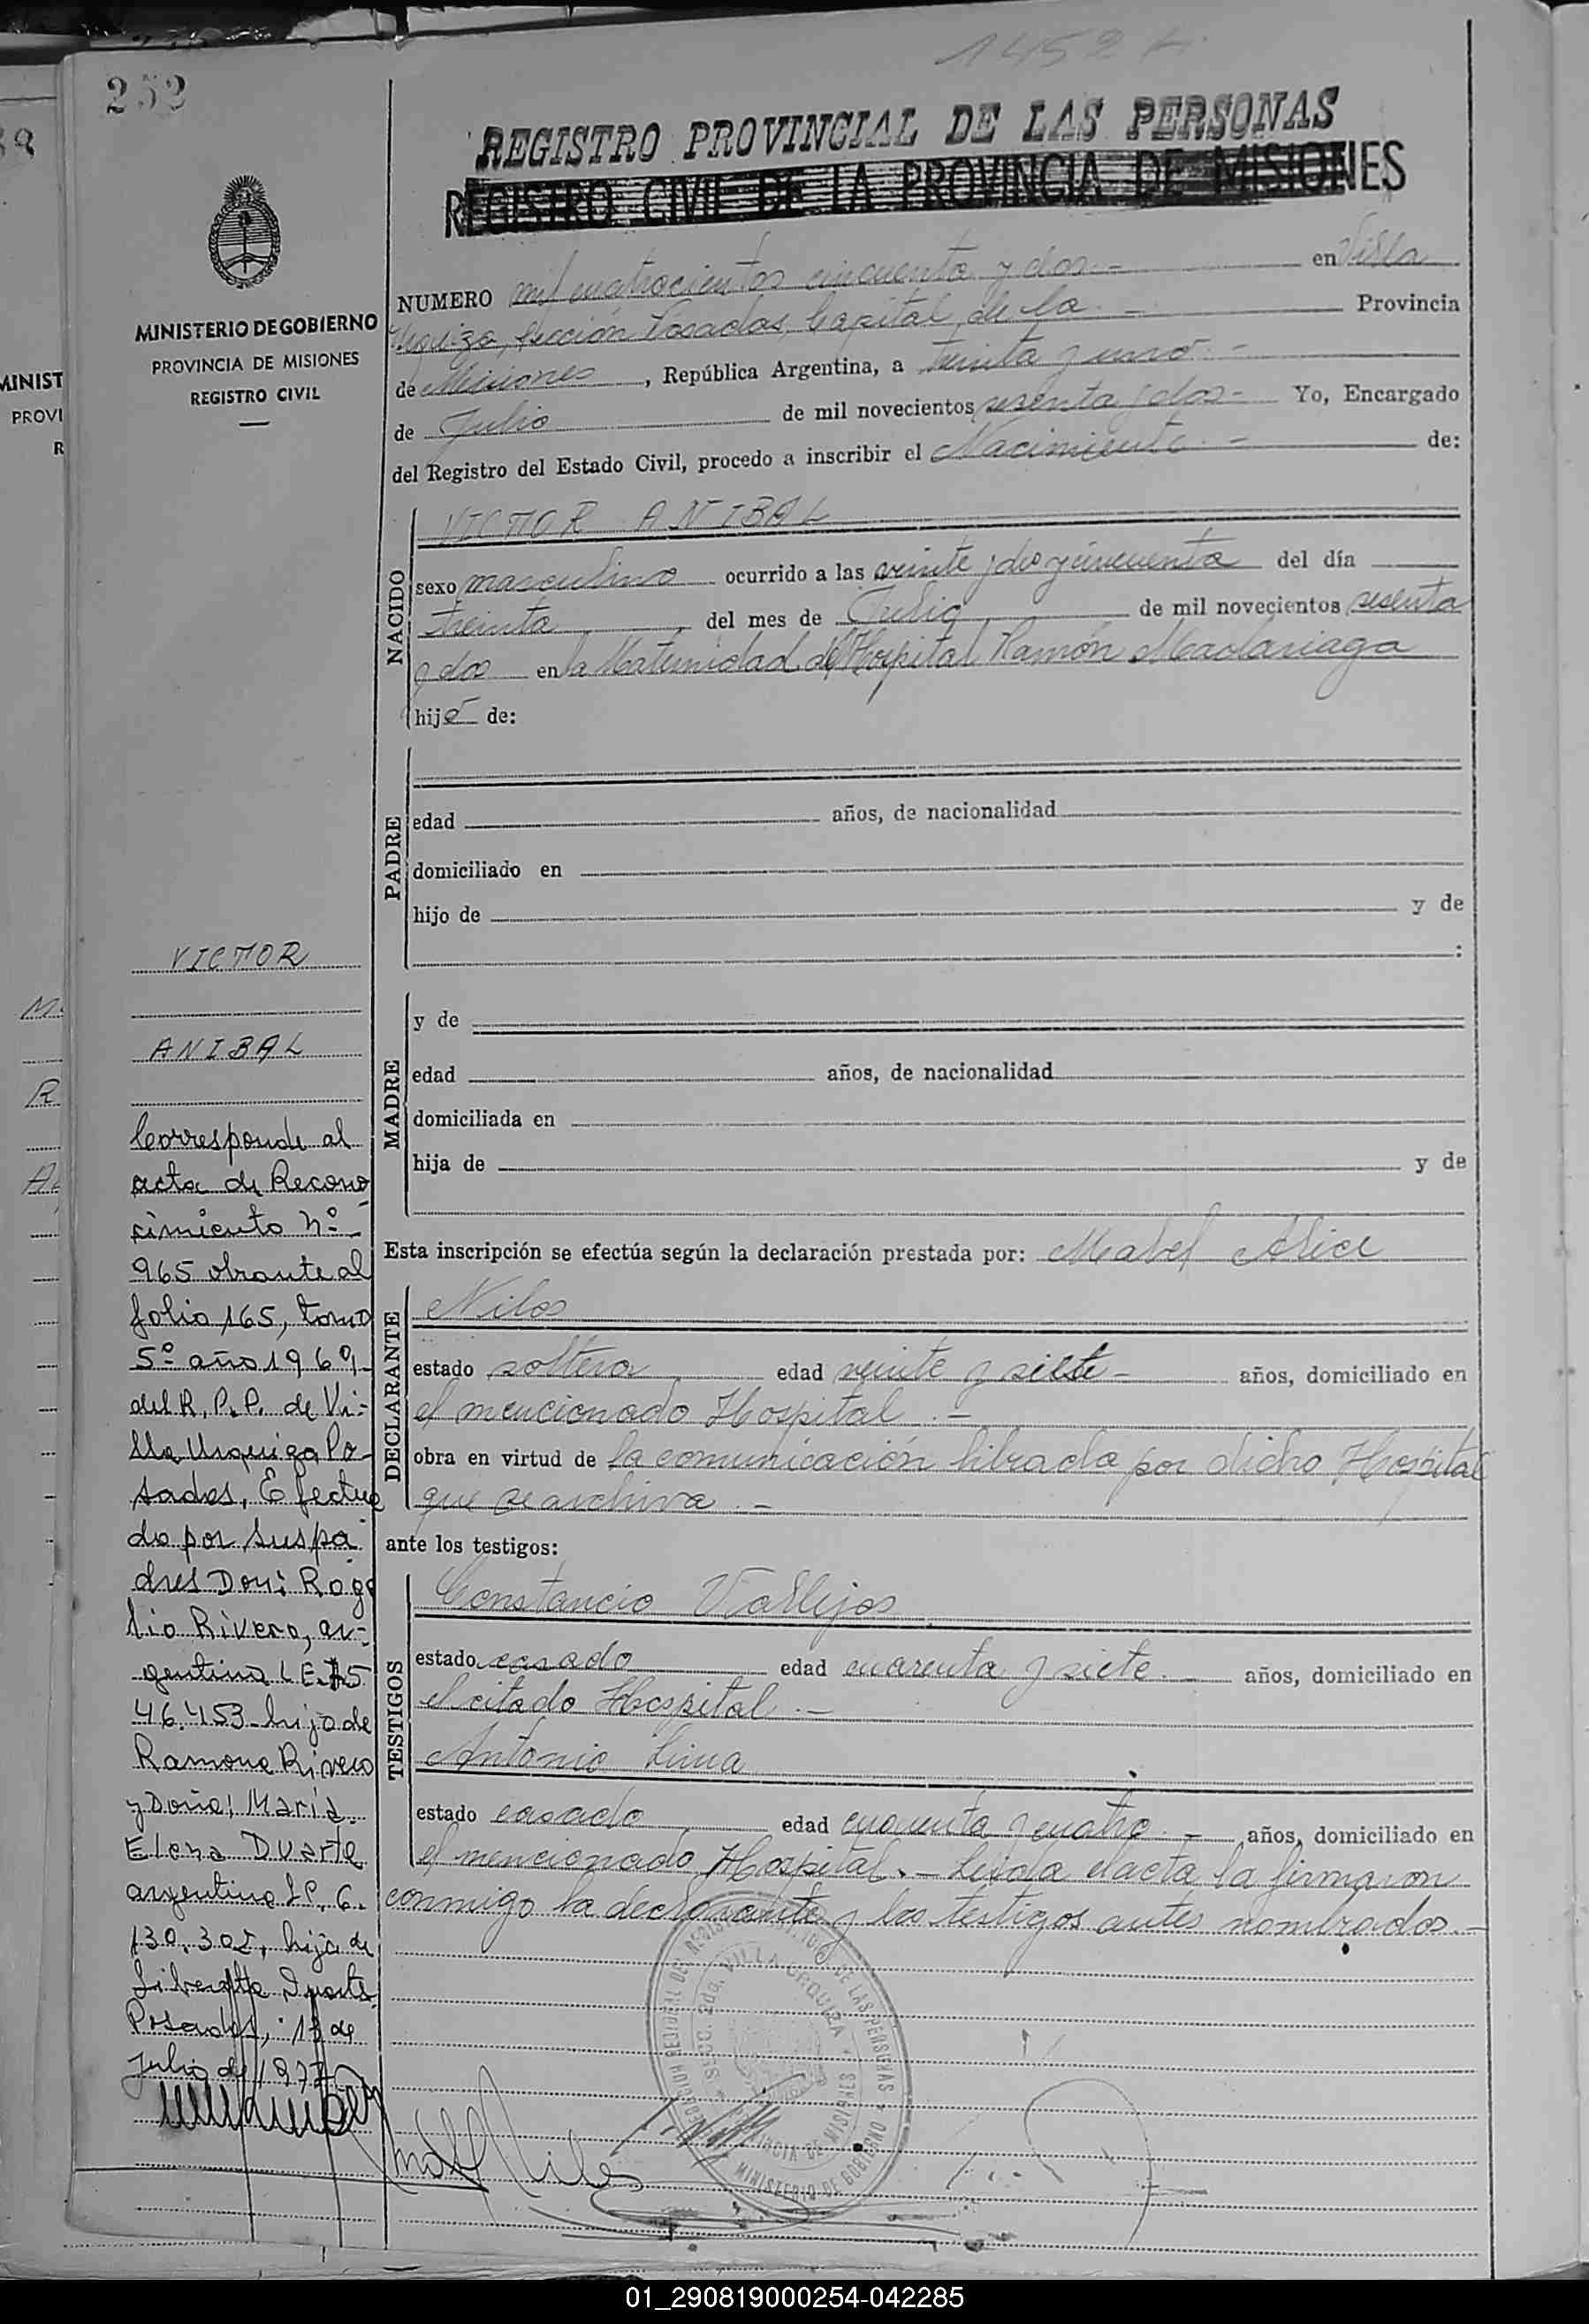 1452
252
REGISTRO PROVINCIAL DE LAS PERSONAS
REGISTRO CIVIL DE LA PROVINCIA DE MISIONES
MINISTERIO DE GOBIERNO
PROVINCIA DE MISIONES
REGISTRO CIVIL
NUMERO mil cuatrocientos cincuenta y dos.- en Villa
Urquiza, sección Posadas, Capital de la - Provincia
de Misiones, República Argentina, a treinta y uno.-
de Julio de mil novecientos sesenta y dos- Yo, Encargado
del Registro del Estado Civil, procedo a inscribir el Nacimiento.- de:
NACIDO
VICTOR ANIBAL
sexo masculino ocurrido a las veinte y dos y cincuenta del día
treinta del mes de Julio de mil novecientos sesenta
y dos en la Maternidad del Hospital Ramón Madariaga
hijo de:
PADRE
edad años, de nacionalidad
domiciliado en
hijo de y de
:
MADRE
y de
edad años, de nacionalidad
domiciliada en
hija de y de
Esta inscripción se efectúa según la declaración prestada por: Mabel Alice
DECLARANTE
Niles
estado soltera edad veinte y siete- años, domiciliado en
el mencionado Hospital.-
obra en virtud de la comunicación librada por dicho Hospital
que se archiva.-
ante los testigos:
TESTIGOS
Constancio Vallejos
estado casado edad cuarenta y siete.- años, domiciliado en
el citado Hospital.-
Antonio Luna
estado casado edad cuarenta y cuatro.- años, domiciliado en
el mencionado Hospital.- Leída el acta la firmaron
conmigo la declarante y los testigos antes nombrados.-
VICTOR
ANIBAL
Corresponde al
acta de Recono
cimiento nº
965 obrante al
folio 165, tomo
5º año 1969
del R. P. P. de Vi-
lla Urquiza Po-
sadas, Efectua
do por sus pa
dres Don: Roge
lio Rivero, ar-
gentino L.E. 75
46.453 hijo de
Ramona Rivero
y Doña: María
Elena Duarte
argentina L.C. 6.
130.302, hija de
Duarte
Posadas, 13 de
Julio de 1977
SECC. 2da. VILLA URQUIZA
PROVINCIA DE MISIONES
MINISTERIO DE GOBIERNO
Mabel Niles
MINIST
PROVI
R
01_290819000254-042285